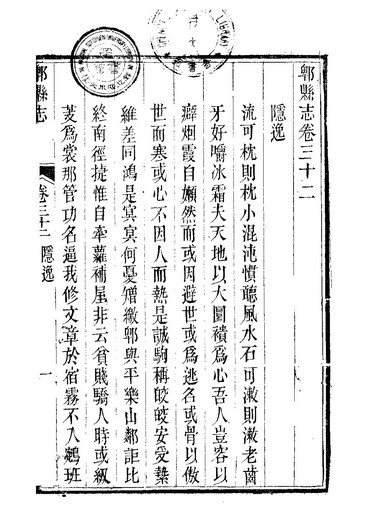 鄲縣志卷三十二
隱逸
流可枕則枕小混沌慣聽風水石可漱則漱老齒
牙好嚼冰霜夫天地以大圜襀為心吾人豈容以
癖烟霞自嬾然而或因避世或為逃名或骨以傲
世而寒或心不因人而熱是誠駒稱皎皎安受縶
維差同鴻是冥冥何憂矰繳鄲與平樂山鄰詎比
終南徑捷惟自牽蘿補屋非云貧賤驕人時或緝
芰為裳那管功名逼我修文章於宿霧不入鵷班
鄲縣志
卷三十二 隱逸
一